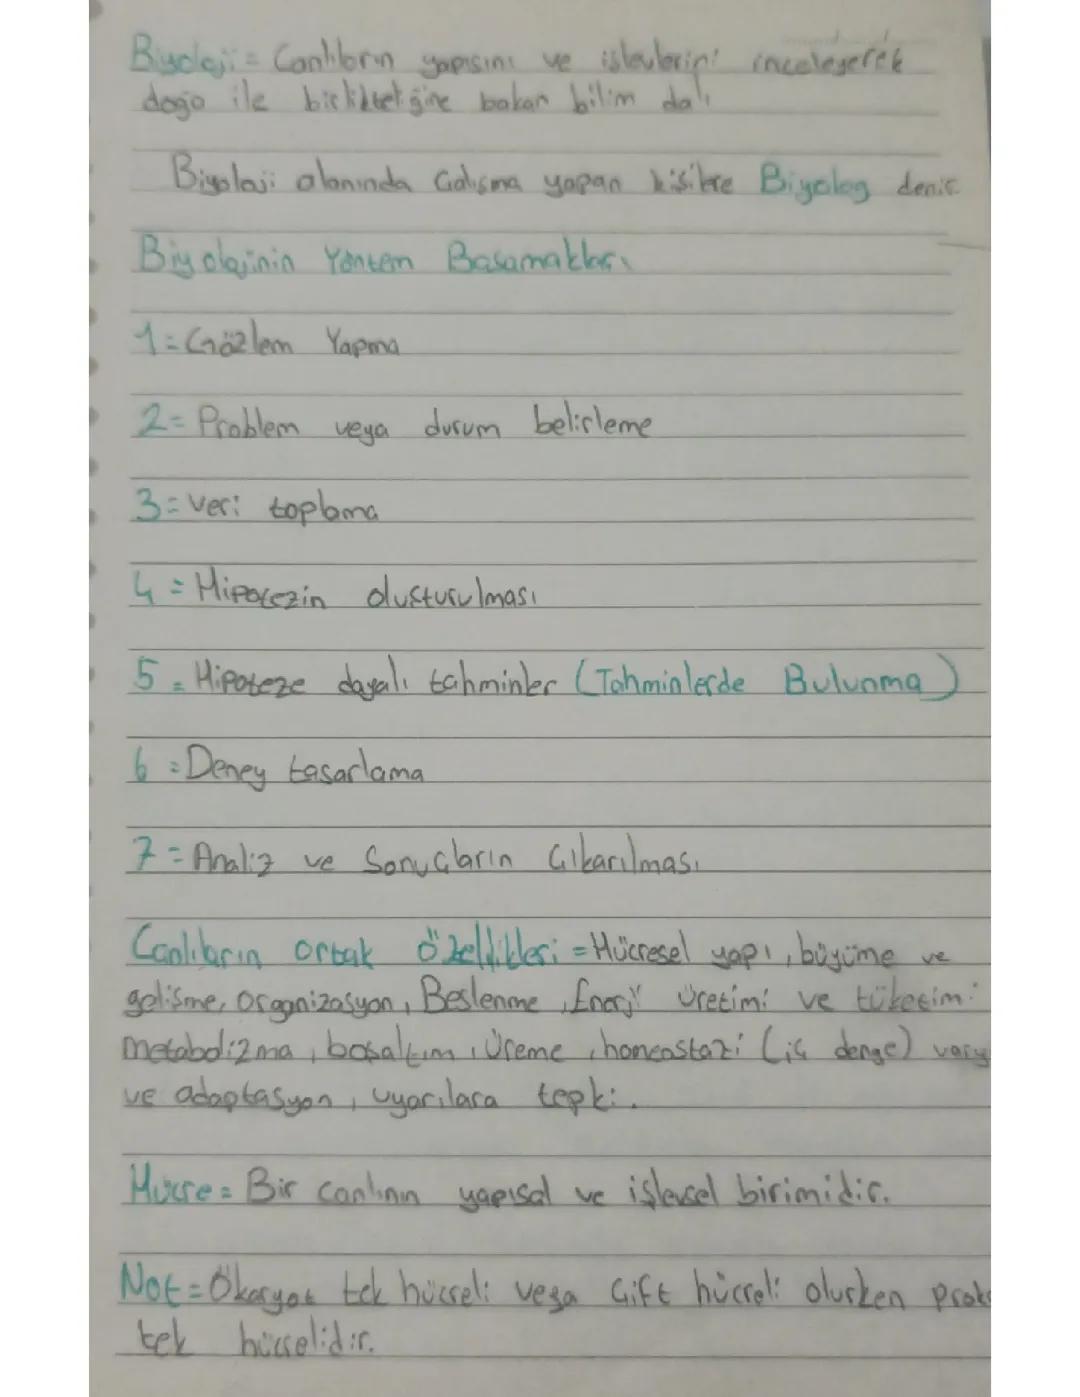 Biyoloji = Canlıların yapısını ve işlevlerini inceleyerek
doğa ile birlikteliğine bakan bilim dalı
Biyoloji alanında Çalışma yapan kişilere Biyolog denir.
Biyolojinin Yöntem Basamakları
1 = Gözlem Yapma
2 = Problem veya durum belirleme
3 = Veri toplama
4 = Hipotezin oluşturulması
5 = Hipoteze dayalı tahminler (Tahminlerde Bulunma)
6 = Deney tasarlama
7 = Analiz ve Sonuçların Çıkarılması
Canlıların ortak özellikleri = Hücresel yapı, büyüme ve
gelişme, Organizasyon, Beslenme, Enerji üretimi ve tüketimi
metabolizma, boşaltım, Üreme, homeostazi (iç denge) vary
ve adaptasyon, uyarılara tepki.
Hücre = Bir canlının yapısal ve işlevsel birimidir.
Not = Ökaryot tek hücreli veya Çift hücreli olurken prok
tek hücrelidir.